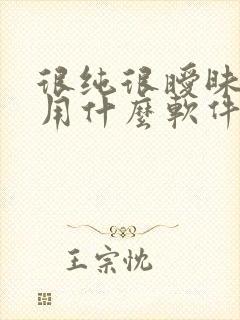 很纯很曖昧
用什麼軟件
王宗忱